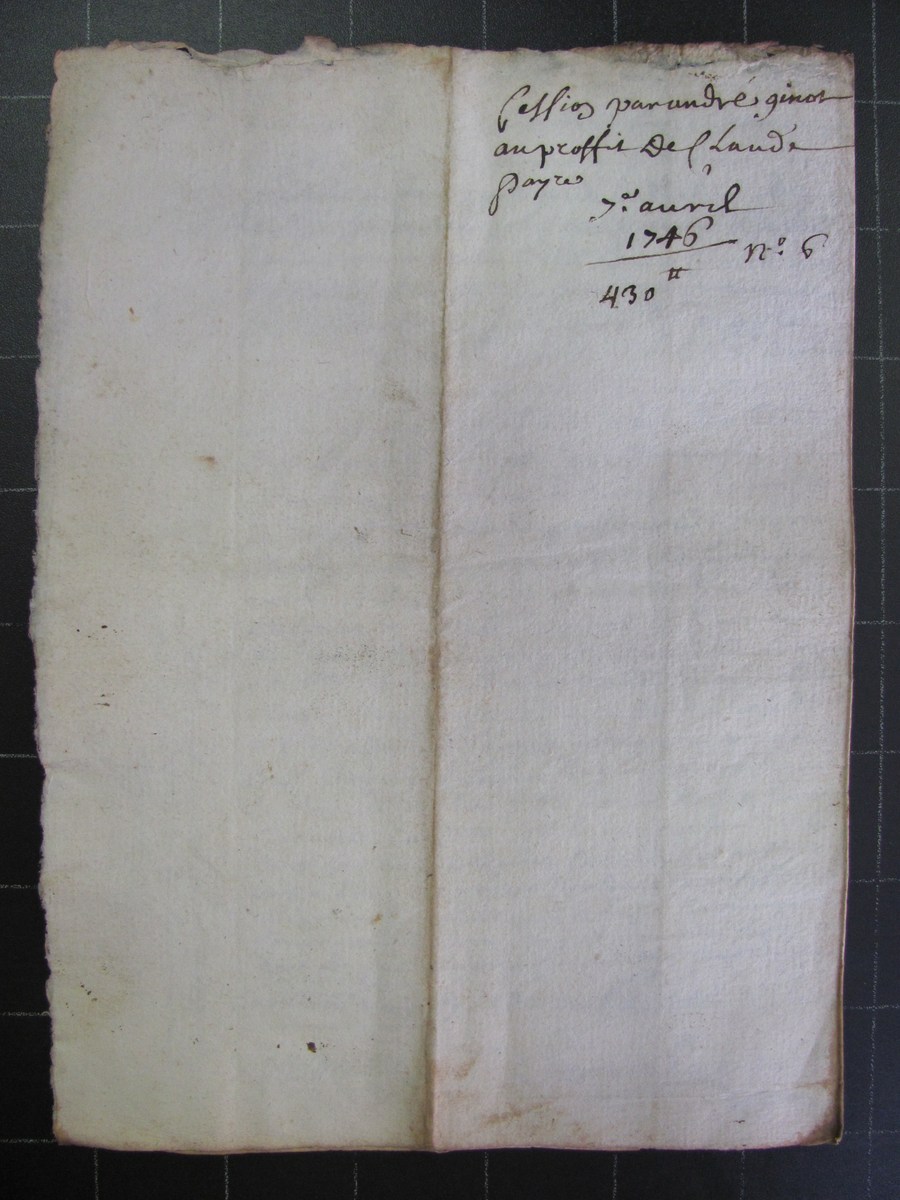 Cession par andré ginot
au proffit de Claude
payre
7e. avril
1746
n.o 6
430 ₶